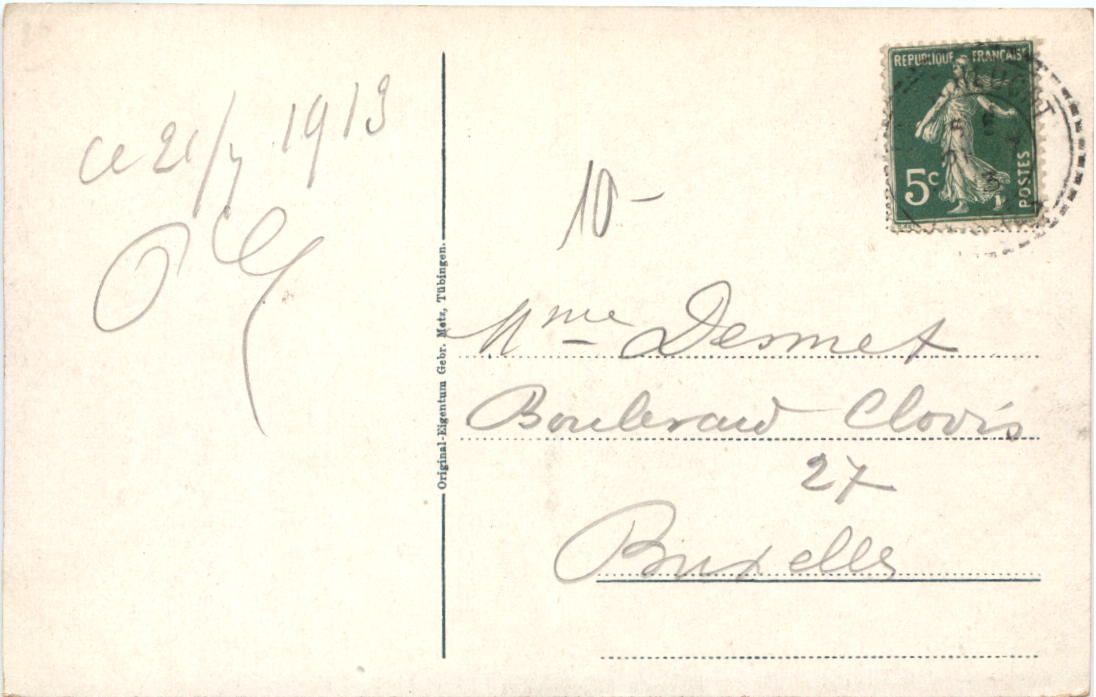 ce 21/7 1913
10-
REPUBLIQUE FRANÇAISE
5c
POSTES
Original-Eigentum Gebr. Metz, Tübingen.
Mme Desmet
Boulevard Clovis
27
Bruxelles